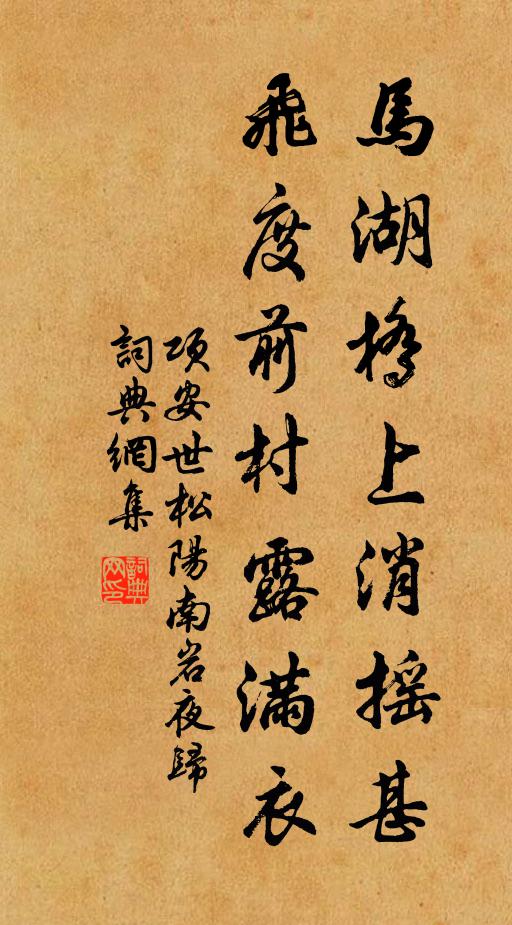 馬湖橋上消搖甚
飛度前村露滿衣
項安世松陽南岩夜歸
詞典網集
詞典
网印